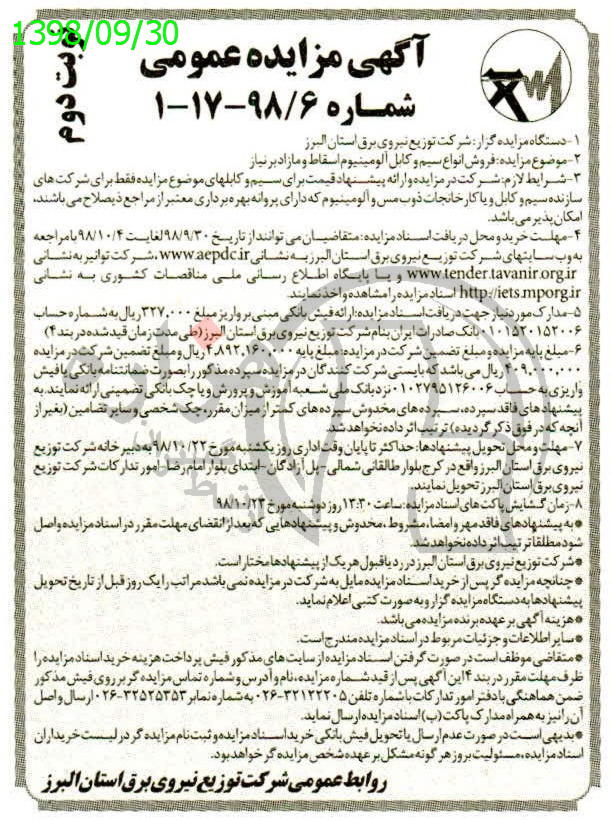 1398/09/30
نوبت دوم
آگهی مزایده عمومی
شماره ۹۸/۶-۱۷-۱
۱-دستگاه مزایده گزار: شرکت توزیع نیروی برق استان البرز
۲-موضوع مزایده: فروش انواع سیم و کابل آلومینیوم اسقاط و مازاد بر نیاز
۳-شرایط لازم: شرکت در مزایده و ارائه پیشنهاد قیمت برای سیم و کابلهای موضوع مزایده فقط برای شرکت های
سازنده سیم و کابل و یا کارخانجات ذوب مس و آلومینیوم که دارای پروانه بهره برداری معتبر از مراجع ذیصلاح می باشند،
امکان پذیر می باشد.
۴-مهلت خرید و محل دریافت اسناد مزایده: متقاضیان می توانند از تاریخ ۹۸/۹/۳۰ لغایت ۹۸/۱۰/۴ با مراجعه
به وب سایتهای شرکت توزیع نیروی برق استان البرز به نشانی www.aepdc.ir، شرکت توانیر به نشانی
www.tender.tavanir.org.ir و یا پایگاه اطلاع رسانی ملی مناقصات کشوری به نشانی
http://iets.mporg.ir اسناد مزایده را مشاهده و اخذ نمایند.
۵-مدارک مورد نیاز جهت دریافت اسناد مزایده: ارائه فیش بانکی مبنی بر واریز مبلغ ۳۲۷,۰۰۰ ریال به شماره حساب
۰۱۰۱۵۲۰۱۵۲۰۰۶ بانک صادرات ایران بنام شرکت توزیع نیروی برق استان البرز (طی مدت زمان قید شده در بند ۴)
۶-مبلغ پایه مزایده و مبلغ تضمین شرکت در مزایده: مبلغ پایه ۴,۸۹۲,۱۶۰,۰۰۰ ریال و مبلغ تضمین شرکت در مزایده
۴۰۹,۰۰۰,۰۰۰ ریال می باشد که بایستی شرکت کنندگان در مزایده سپرده مذکور را بصورت ضمانتنامه بانکی یا فیش
واریزی به حساب ۰۱۰۲۷۹۵۱۲۶۰۰۶ نزد بانک ملی شعبه آموزش و پرورش و یا چک بانکی تضمینی ارائه نمایند. به
پیشنهادهای فاقد سپرده، سپرده های مخدوش سپرده های کمتر از میزان مقرر، چک شخصی و سایر تضامین (بغیر از
آنچه که در فوق ذکر گردیده) ترتیب اثر داده نخواهد شد.
۷-مهلت و محل تحویل پیشنهادها: حداکثر تا پایان وقت اداری روز یکشنبه مورخ ۹۸/۱۰/۲۲ به دبیرخانه شرکت توزیع
نیروی برق استان البرز واقع در کرج بلوار طالقانی شمالی-پل آزادگان-ابتدای بلوار امام رضا-امور تدارکات شرکت توزیع
نیروی برق استان البرز تحویل نمایند.
۸-زمان گشایش پاکت های اسناد مزایده: ساعت ۱۳:۳۰ روز دوشنبه مورخ ۹۸/۱۰/۲۳
*به پیشنهادهای فاقد مهر و امضا، مشروط، مخدوش و پیشنهادهایی که بعد از انقضای مهلت مقرر در اسناد مزایده واصل
شود مطلقا ترتیب اثر داده نخواهد شد.
*شرکت توزیع نیروی برق استان البرز در رد یا قبول هر یک از پیشنهادها مختار است.
*چنانچه مزایده گر پس از خرید اسناد مزایده مایل به شرکت در مزایده نمی باشد مراتب را یک روز قبل از تاریخ تحویل
پیشنهادها به دستگاه مزایده گزار و به صورت کتبی اعلام نماید.
*هزینه آگهی بر عهده برنده مزایده می باشد.
*سایر اطلاعات و جزئیات مربوط در اسناد مزایده مندرج است.
*متقاضی موظف است در صورت گرفتن اسناد مزایده از سایت های مذکور فیش پرداخت هزینه خرید اسناد مزایده را
ظرف مهلت مقرر در بند ۴ این آگهی پس از قید شماره مزایده، نام و آدرس و شماره تماس مزایده گر بر روی فیش مذکور
ضمن هماهنگی با دفتر امور تدارکات با شماره تلفن ۳۲۱۲۲۲۰۵-۰۲۶ به شماره نمابر ۳۲۵۲۵۳۵۳-۰۲۶ ارسال و اصل
آن را نیز به همراه مدارک پاکت (ب) اسناد مزایده ارسال نماید.
*بدیهی است در صورت عدم ارسال یا تحویل فیش بانکی خرید اسناد مزایده و ثبت نام مزایده گر در لیست خریداران
اسناد مزایده، مسئولیت بروز هر گونه مشکل بر عهده شخص مزایده گر خواهد بود.
روابط عمومی شرکت توزیع نیروی برق استان البرز